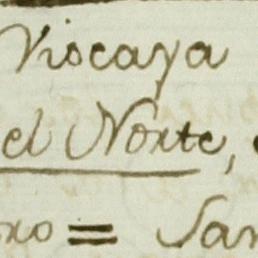 Viscaya
el Norte,
oxo = San